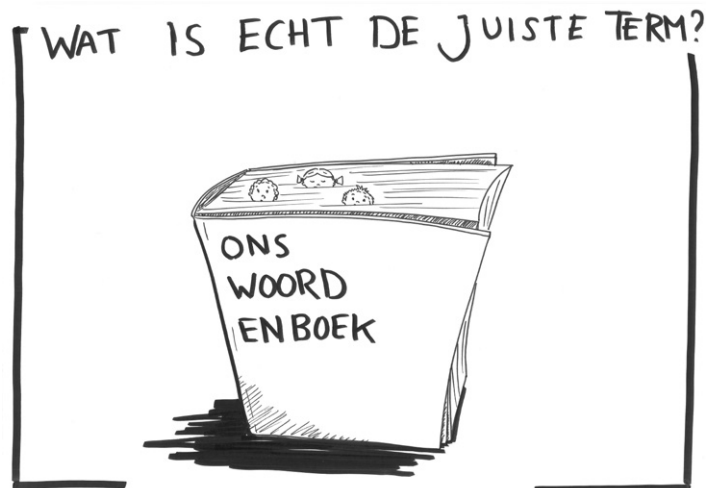 WAT IS ECHT DE JUISTE TERM?
ONS
WOORD
ENBOEK